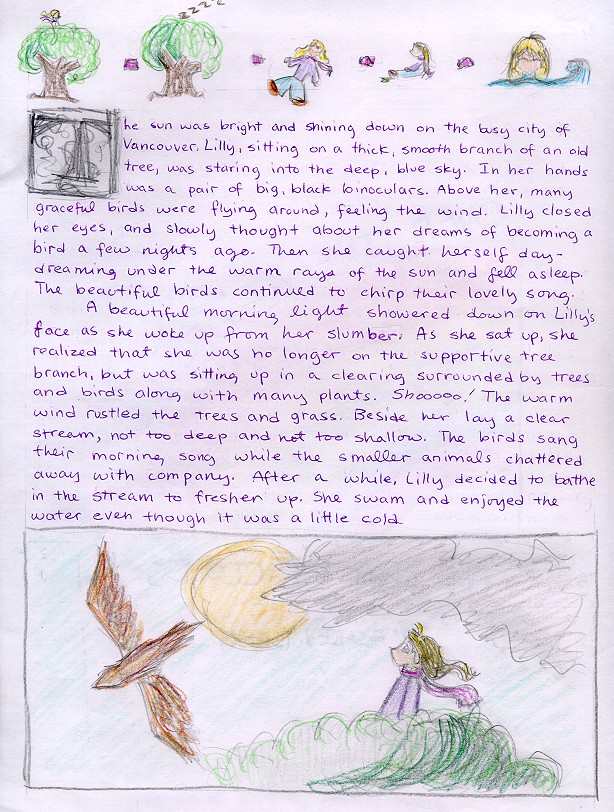 zzzz
The sun was bright and shining down on the busy city of
Vancouver. Lilly, sitting on a thick, smooth branch of an old
tree, was staring into the deep, blue sky. In her hands
was a pair of big, black binoculars. Above her, many
graceful birds were flying around, feeling the wind. Lilly closed
her eyes, and slowly thought about her dreams of becoming a
bird a few nights ago. Then she caught herself day-
dreaming under the warm rays of the sun and fell asleep.
The beautiful birds continued to chirp their lovely song.
A beautiful morning light showered down on Lilly's
face as she woke up from her slumber. As she sat up, she
realized that she was no longer on the supportive tree
branch, but was sitting up in a clearing surrounded by trees
and birds along with many plants. Shooooo! The warm
wind rustled the trees and grass. Beside her lay a clear
stream, not too deep and not too shallow. The birds sang
their morning song while the smaller animals chattered
away with company. After a while, Lilly decided to bathe
in the stream to fresher up. She swam and enjoyed the
water even though it was a little cold.